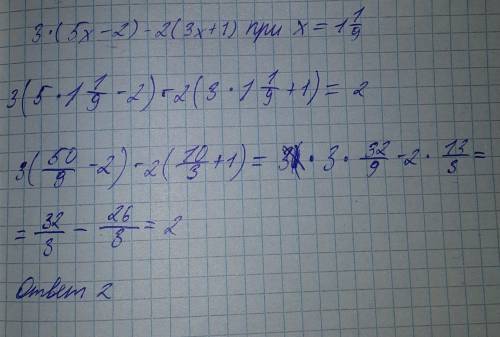 3·(5x-2)-2(3x+1) при x = 1 1/9
3(5·1 1/9 -2)-2(3·1 1/9 +1)= 2
3(50/9 -2)-2(10/3 +1)= 3·32/9 -2·13/3 =
= 32/3 - 26/3 = 2
Ответ 2